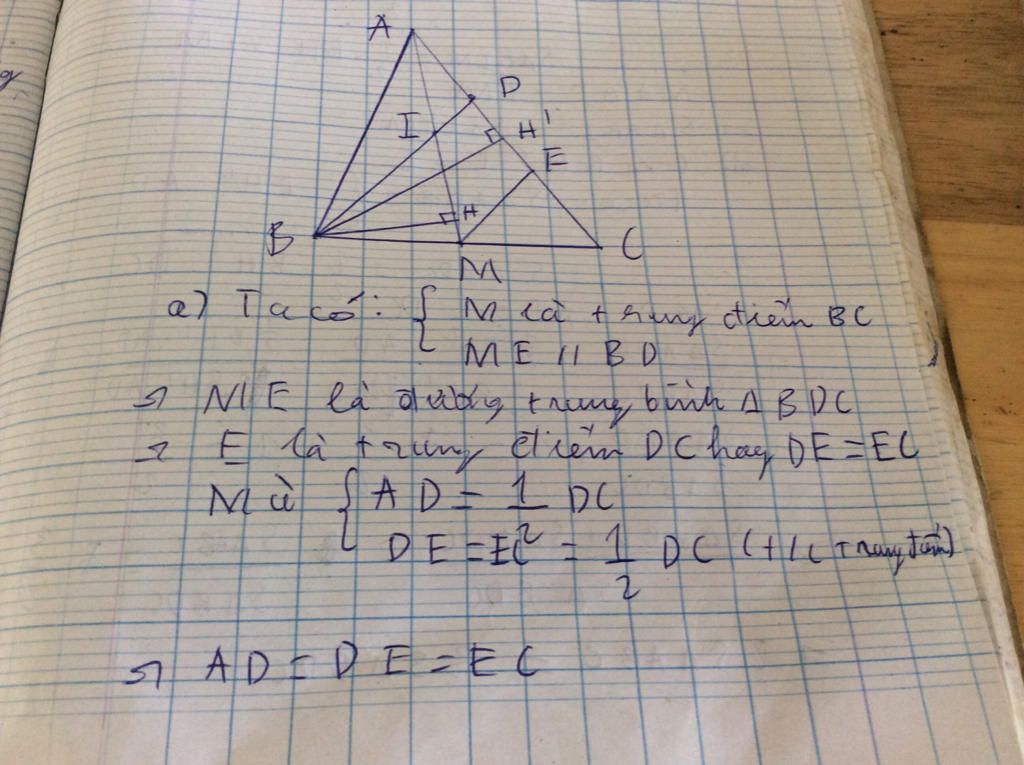 A
D
I
H'
E
H
B
C
M
a) Ta có: { M là trung điểm BC
ME // BD
=> ME là đường trung bình Δ BDC
=> E là trung điểm DC hay DE = EC
Mà { AD = 1/2 DC
DE = EC = 1/2 DC (t/c trung điểm)
=> AD = DE = EC